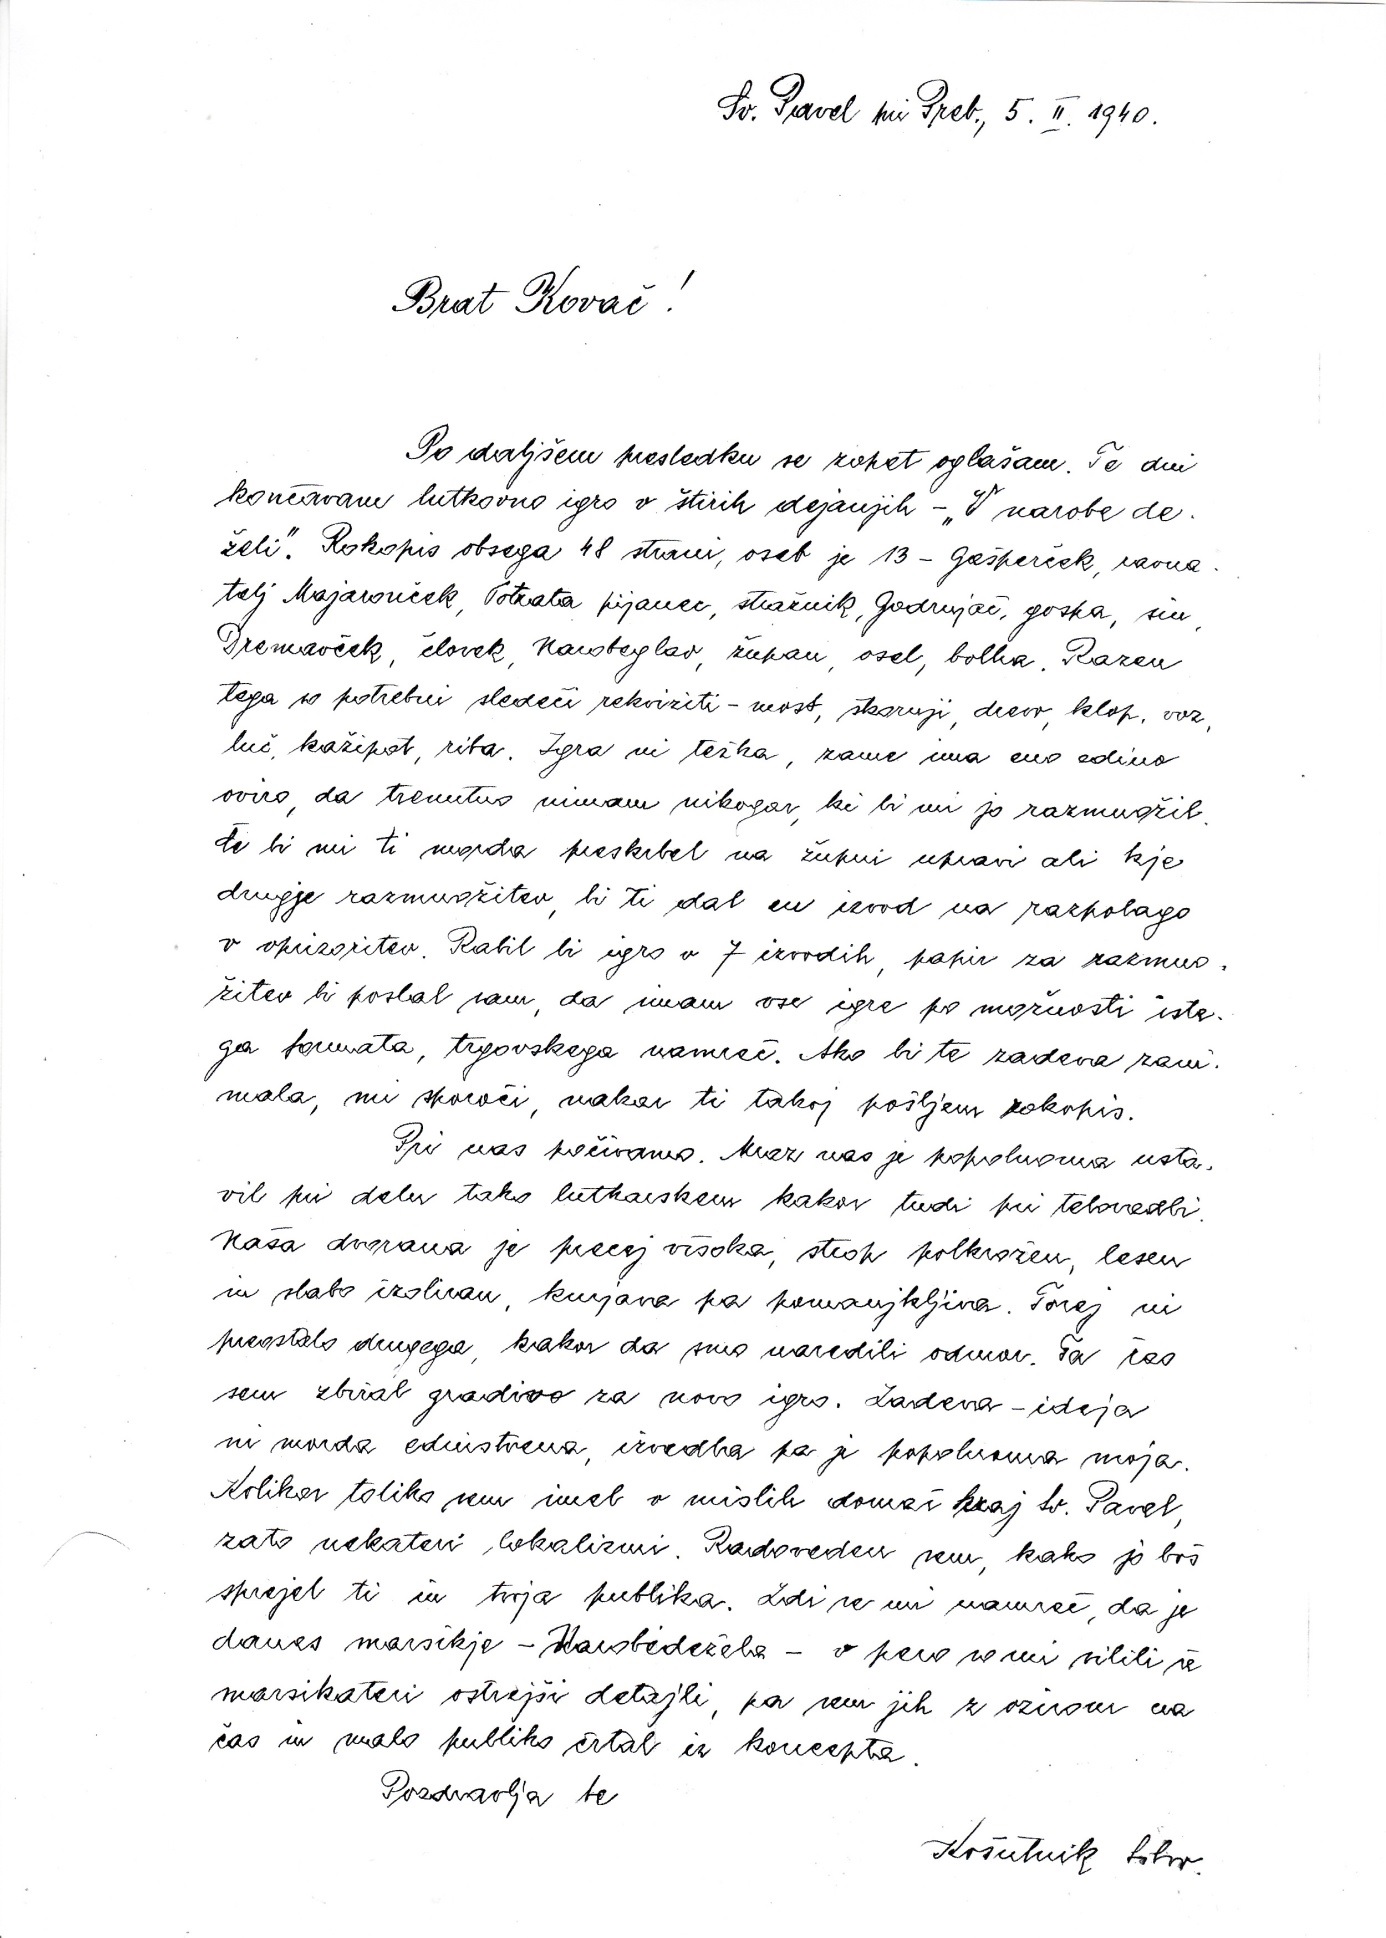 Sv. Pavel pri Preb., 5. II. 1940.
Brat Kovač!
Po daljšem presledku se zopet oglašam. Te dni
končavam lutkovno igro v štirih dejanjih – „V narobe de-
želi". Rokopis obsega 48 strani, oseb je 13 – Gašperček, ravna-
telj Majaronček, Potrata pijanec, stražnik, Godrnjač, gospa, sin,
Dremavček, človek, Narobeglav, župan, osel, bolha. Razen
tega so potrebni sledeči rekviziti – most, škornji, drevo, klop, voz,
luč, kažipot, riba. Igra ni težka, zame ima eno edino
oviro, da trenutno nimam nikogar, ki bi mi jo razmnožil.
Če bi mi ti morda preskrbel na župni upravi ali kje
drugje razmnožitev, bi ti dal en izvod na razpolago
v oprizoritev. Rabil bi igro v 7 izvodih, papir za razmno-
žitev bi poslal sam, da imam vse igre po možnosti iste-
ga formata, trgovskega namreč. Ako bi te zadeva zani-
mala, mi sporoči, nakar ti takoj pošljem rokopis.
Pri nas počivamo. Mraz nas je popolnoma usta-
vil pri delu tako lutkarskem kakor tudi pri telovadbi.
Naša dvorana je precej visoka, strop polkrožen, lesen
in slabo izoliran, kurjava pa pomanjkljiva. Torej ni
preostalo drugega, kakor da smo naredili odmor. Ta čas
sem zbiral gradivo za novo igro. Zadeva – ideja
ni morda edinstvena, izvedba pa je popolnoma moja.
Kolikor toliko sem imel v mislih domač kraj Sv. Pavel,
zato nekateri lokalizmi. Radoveden sem, kako jo boš
sprejel ti in tvoja publika. Zdi se mi namreč, da je
danes marsikje – Narobedežela – v pero so mi silili še
marsikateri ostrejši detajli, pa sem jih z ozirom na
čas in malo publiko črtal iz koncepta.
Pozdravlja te
Košutnik